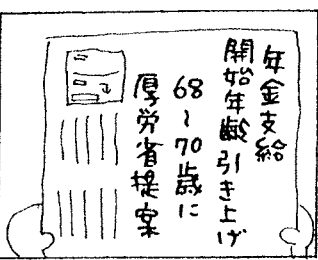 年金支給
開始年齢引き上げ
68～70歳に
厚労省提案